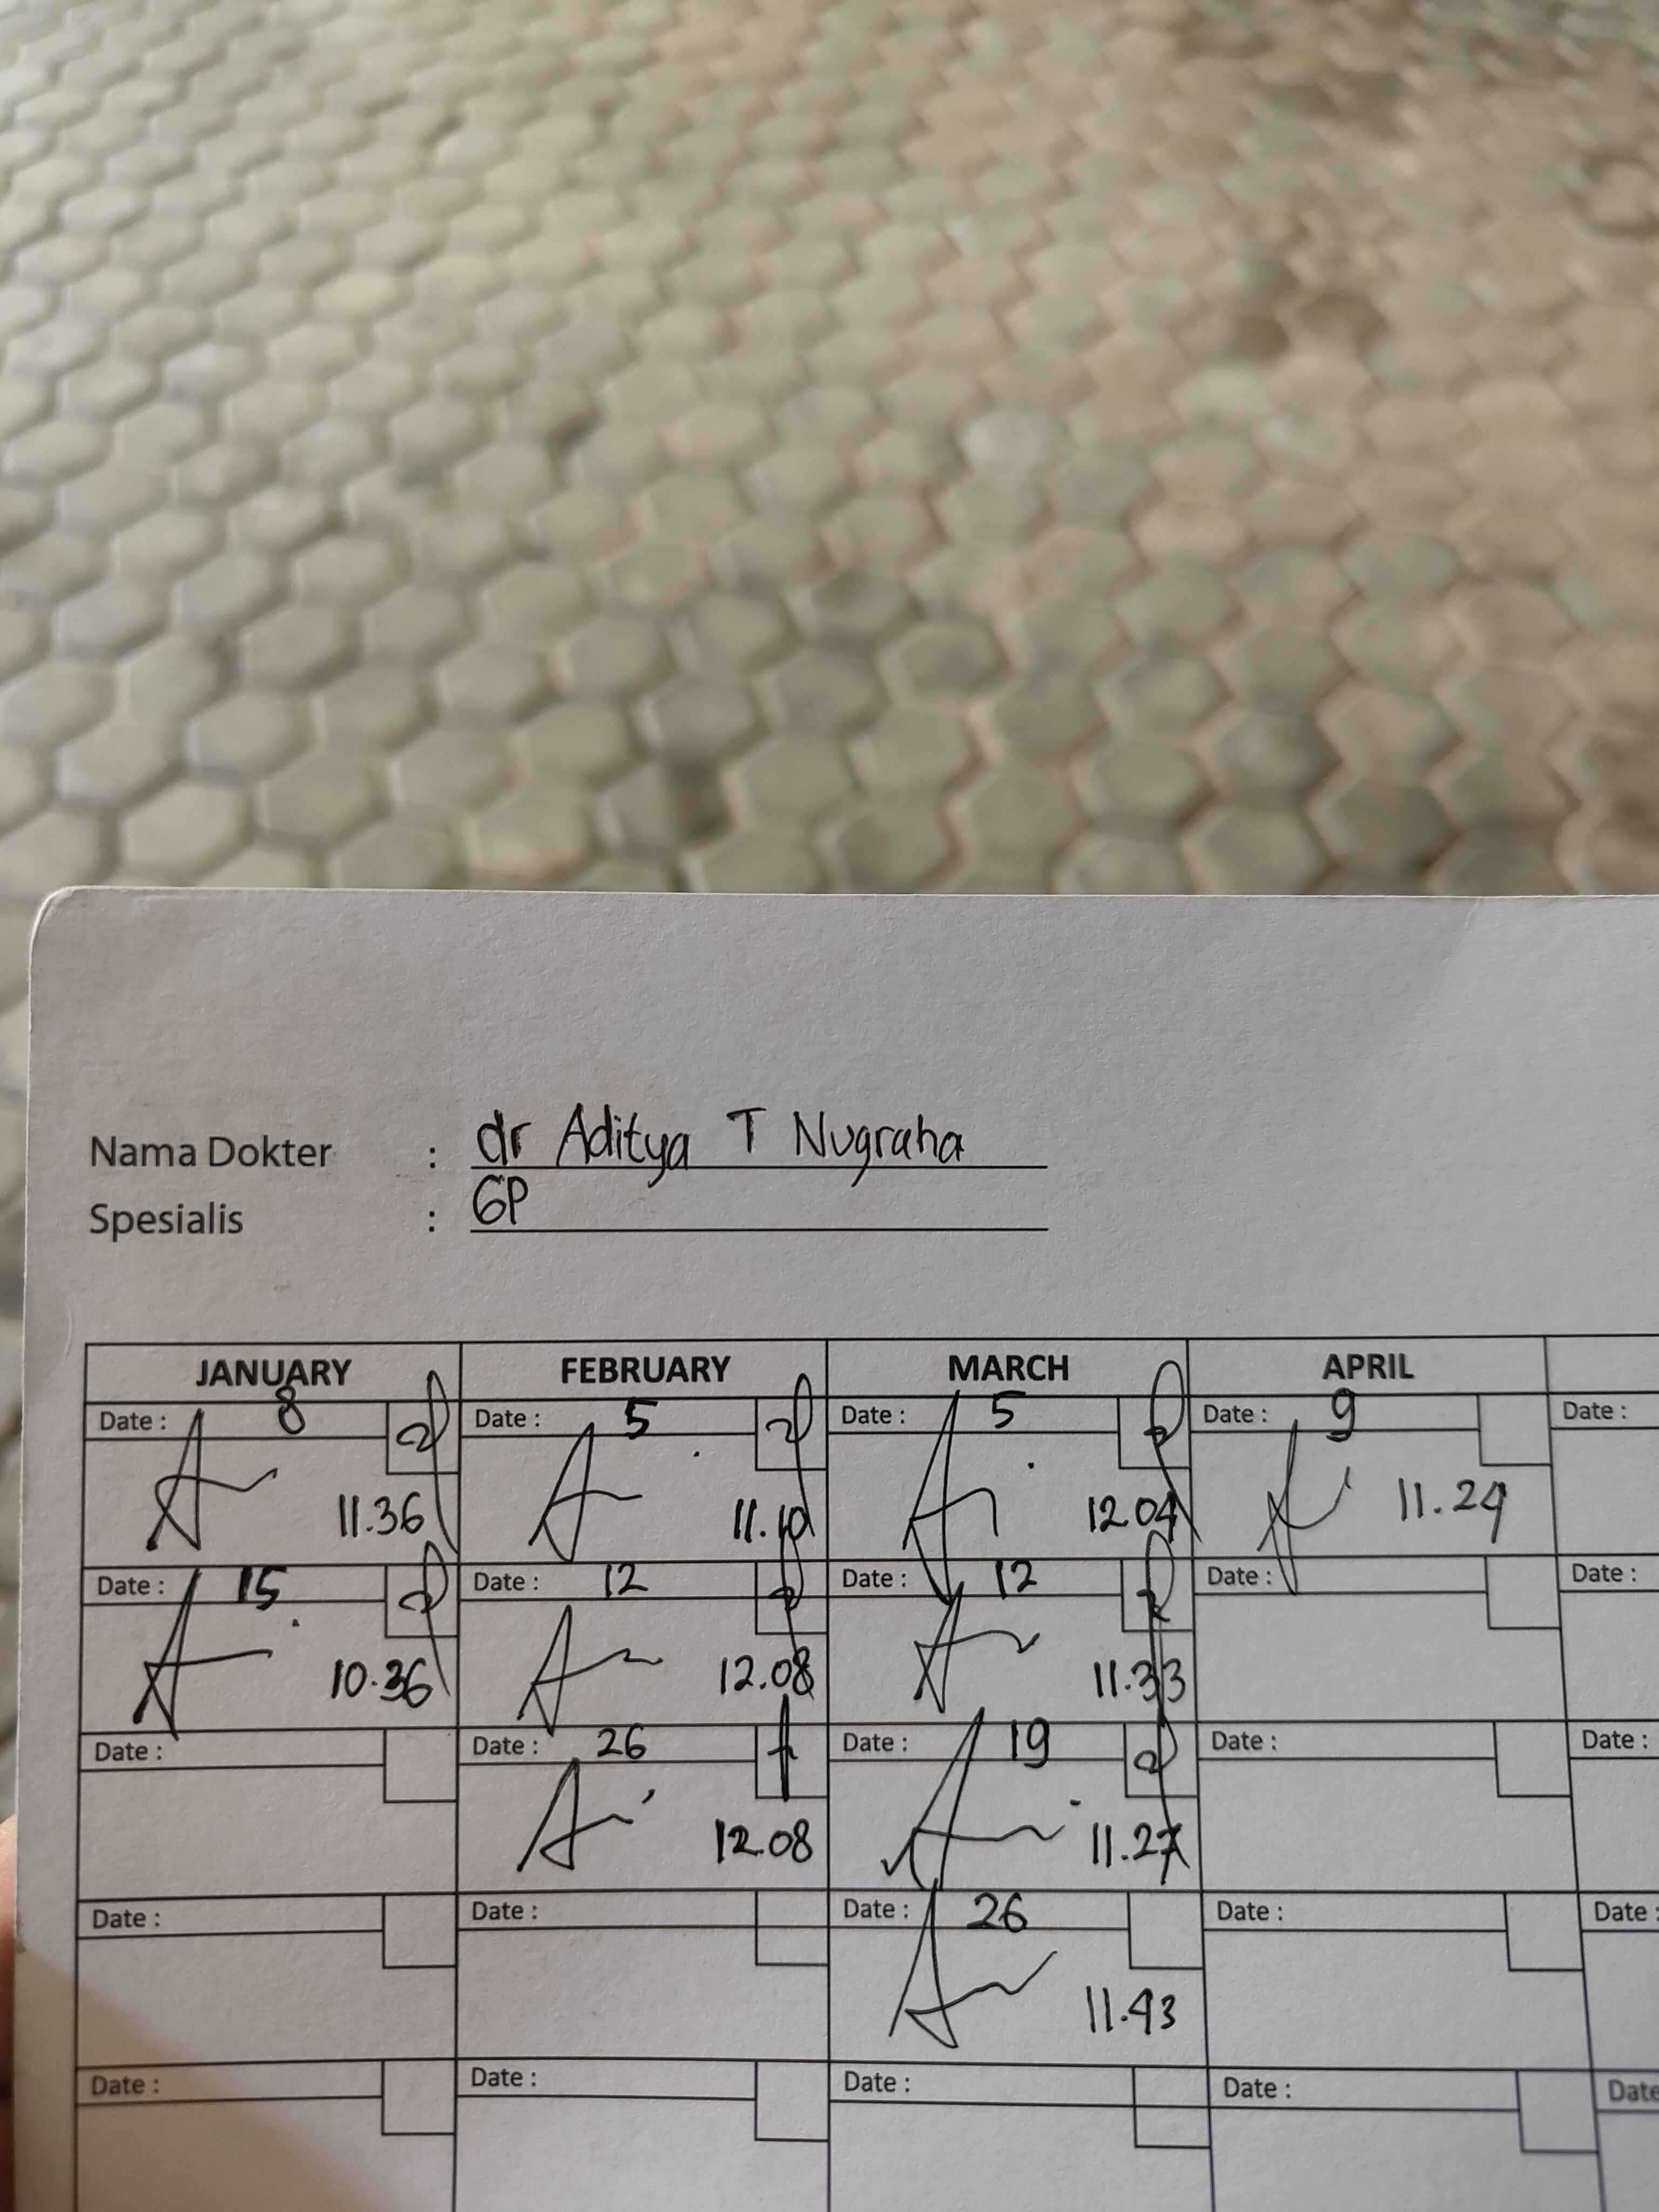 Nama Dokter : dr Aditya T Nugraha
Spesialis : GP
JANUARY FEBRUARY MARCH APRIL
Date : 8 Date : 5 Date : 5 Date : 9 Date :
11.36 11.10 12.04 11.24
Date : 15 Date : 12 Date : 12 Date : Date :
10.36 12.08 11.33
Date : Date : 26 Date : 19 Date : Date :
12.08 11.27
Date : Date : Date : 26 Date : Date :
11.43
Date : Date : Date : Date : Date